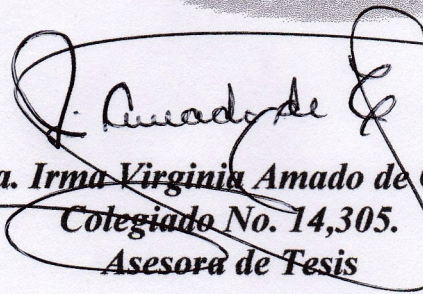 I. Amado de
a. Irma Virginia Amado de
Colegiado No. 14,305.
Asesora de Tesis